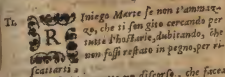 Ti.
R Iniego Marte se non t'ammaz-
zo, che ti son gito cercando per
tutte l'hostarie, dubitando, che
non fussi restato in pegno, per ri-
scattarti.
discorso, che facea